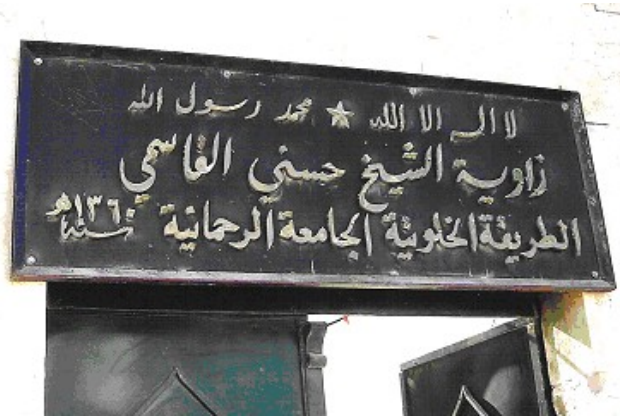 لا اله الا الله ★ محمد رسول الله
زاوية الشيخ حسني القاسمي
الطريقة الخلوتية الجامعة الرحمانية سنة ١٣٦٠هـ